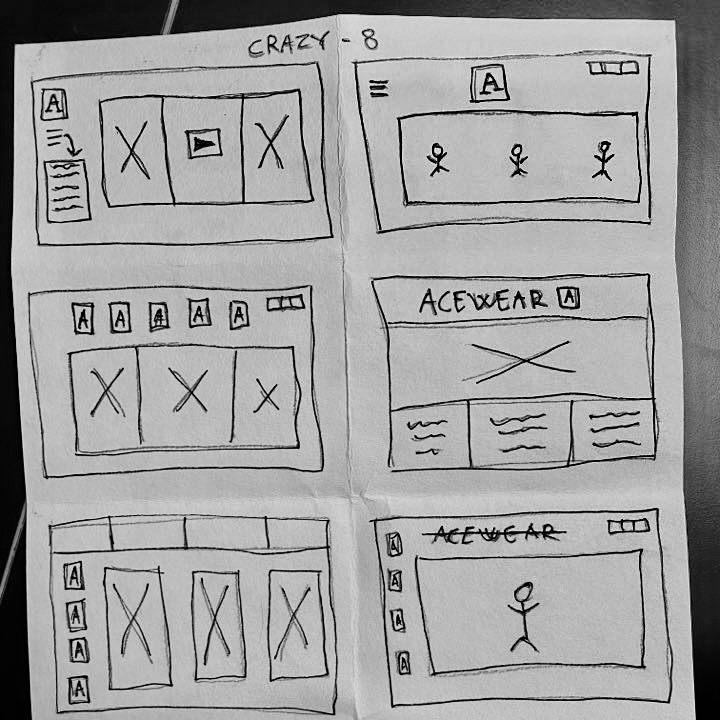 CRAZY - 8
A
A
A A A A A
ACEWEAR A
A
A
A
A
ACEWEAR
A
A
A
A